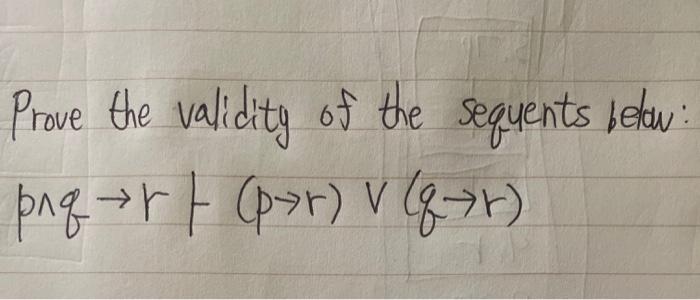 Prove the validity of the sequents below:
p∧q → r ⊢ (p→r) ∨ (q→r)